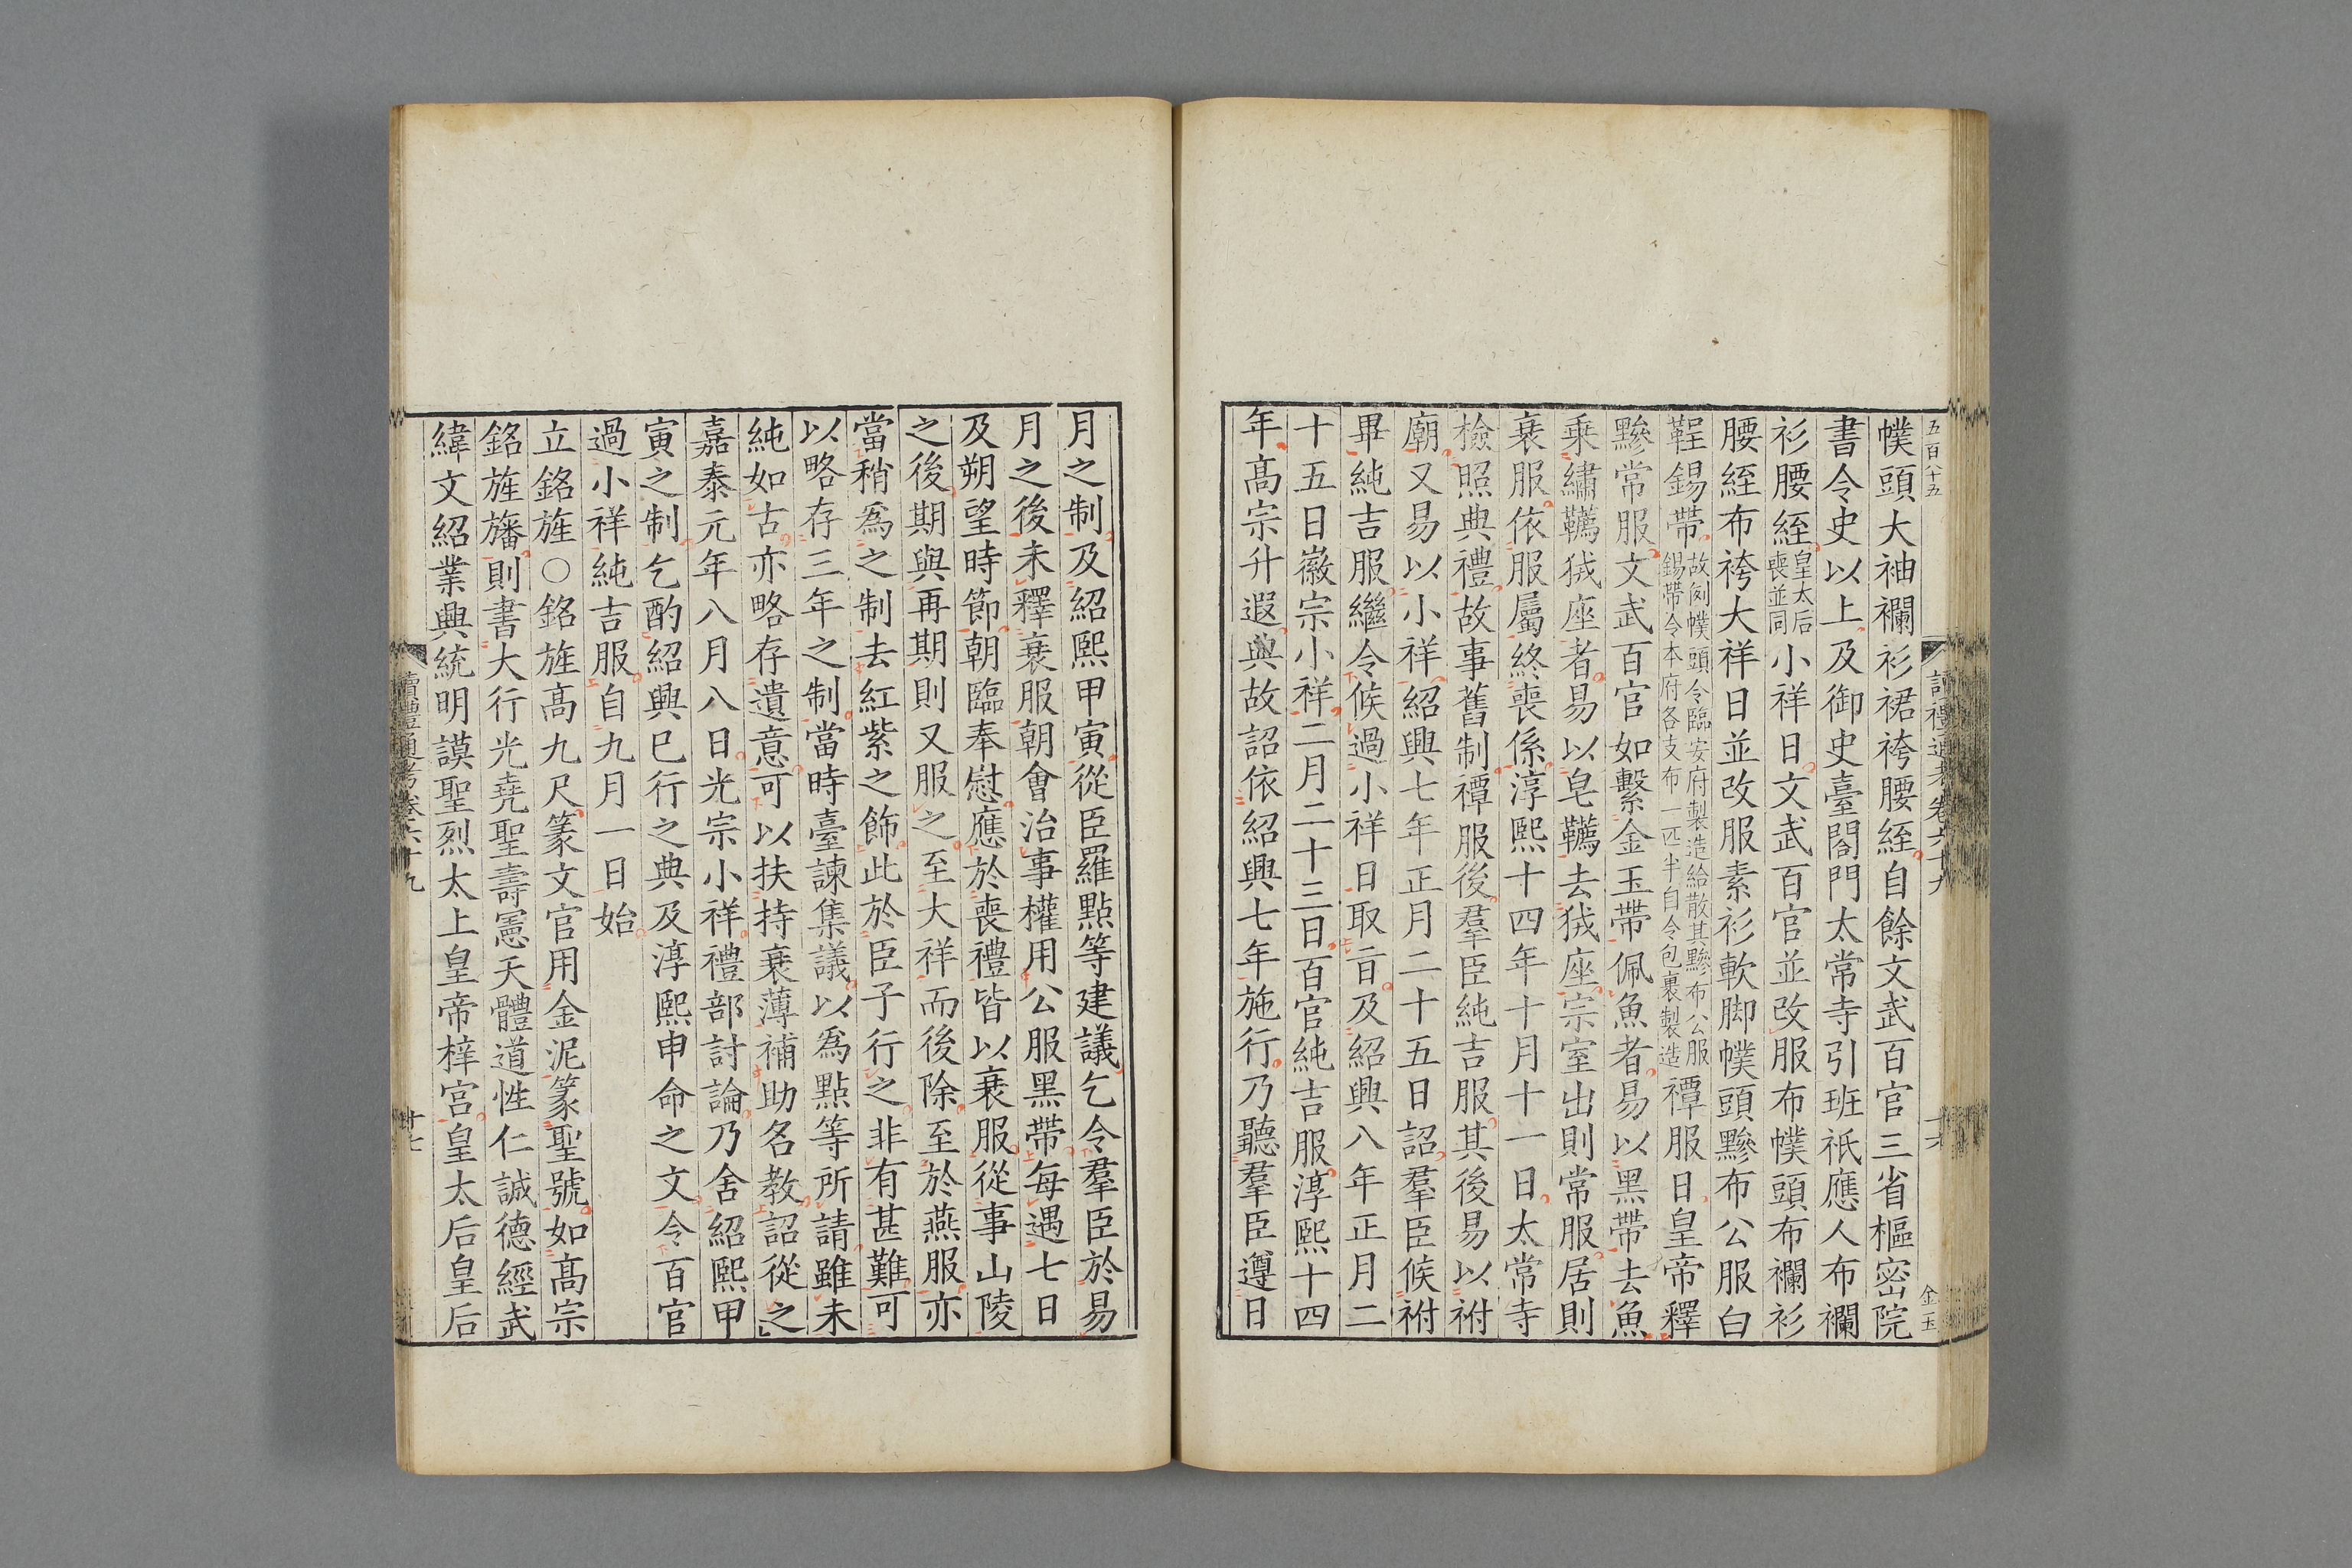 五百八十五
讀禮通考卷六十九
十六
金玉
幞頭大袖襴衫裙袴腰絰自餘文武百官三省樞密院
書令史以上及御史臺閤門太常寺引班祇應人布襴
衫腰絰皇太后喪並同小祥日文武百官並改服布幞頭布襴衫
腰絰布袴大祥日並改服素衫軟脚幞頭黲布公服白
鞓錫帶故例幞頭令臨安府製造給散其黲布公服錫帶令本府各支布一匹半自令包裹製造禫服日皇帝釋
黲常服文武百官如繫金玉帶佩魚者易以黑帶去魚
乘繡韉狨座者易以皂韉去狨座宗室出則常服居則
衰服依服屬終喪係淳熙十四年十月十一日太常寺
檢照典禮故事舊制禫服後羣臣純吉服其後易以祔
廟又易以小祥紹興七年正月二十五日詔羣臣候祔
畢純吉服繼令候過小祥日取旨及紹興八年正月二
十五日徽宗小祥二月二十三日百官純吉服淳熙十四
年高宗升遐與故詔依紹興七年施行乃聽羣臣遵日
月之制及紹熙甲寅從臣羅點等建議乞令羣臣於易
月之後未釋衰服朝會治事權用公服黑帶每遇七日
及朔望時節朝臨奉慰應於喪禮皆以衰服從事山陵
之後期與再期則又服之至大祥而後除至於燕服亦
當稍爲之制去紅紫之飾此於臣子行之非有甚難可
以略存三年之制當時臺諫集議以爲點等所請雖未
純如古亦略存遺意可以扶持衰薄補助名教詔從之
嘉泰元年八月八日光宗小祥禮部討論乃舍紹熙甲
寅之制乞酌紹興已行之典及淳熙申命之文令百官
過小祥純吉服自九月一日始
立銘旌○銘旌高九尺篆文官用金泥篆聖號如高宗
銘旌旛則書大行光堯聖壽憲天體道性仁誠德經武
緯文紹業興統明謨聖烈太上皇帝梓宮皇太后皇后
讀禮通考卷六十九
十七